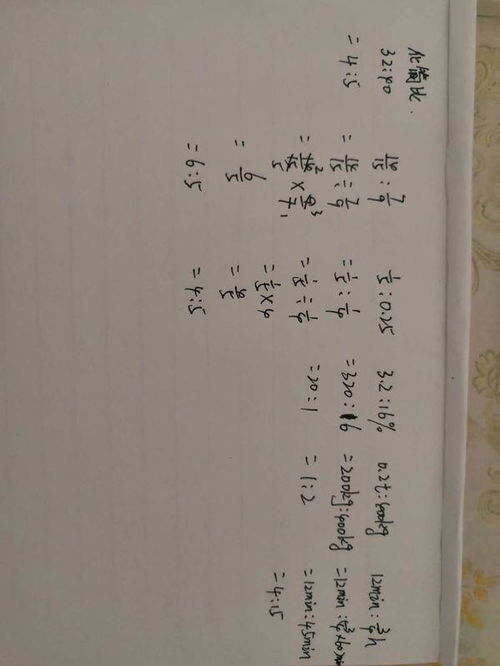 化简比.
32:40
=4:5
14/15:7/9
=14/15÷7/9
=14/15×9/7
=6/5
=6:5
1/5:0.25
=1/5:1/4
=1/5÷1/4
=1/5×4
=4/5
=4:5
3.2:16%
=320:16
=20:1
0.2t:400kg
=200kg:400kg
=1:2
12min:3/4h
=12min:3/4×60min
=12min:45min
=4:15